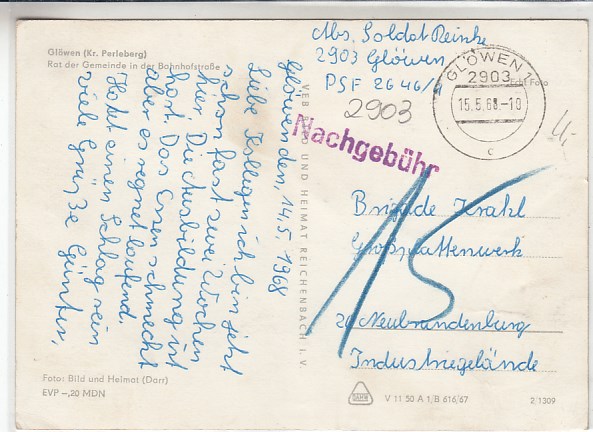 Glöwen (Kr. Perleberg)
Rat der Gemeinde in der Bahnhofstraße
Glöwen den, 14.5. 1968
Liebe Kollegin ich bin jetzt
schon fast zwei Wochen
hier. Die Ausbildung ist
hart. Das Essen schmeckt
aber es regnet laufend.
Hat einen Schlag rein
viele Grüße Günter,
Foto: Bild und Heimat (Darr)
EVP –,20 MDN
VEB BILD UND HEIMAT REICHENBACH i. V.
Abs. Soldat Reinke
2903 Glöwen
PSF 2646/
2903
GLÖWEN 1
2903
15.5.68.-10
c
Echt Foto
Nachgebühr
15
Brigade Krahl
Großplattenwerk
20 Neubrandenburg
Industriegelände
V 11 50 A 1/B 616/67
2/1309